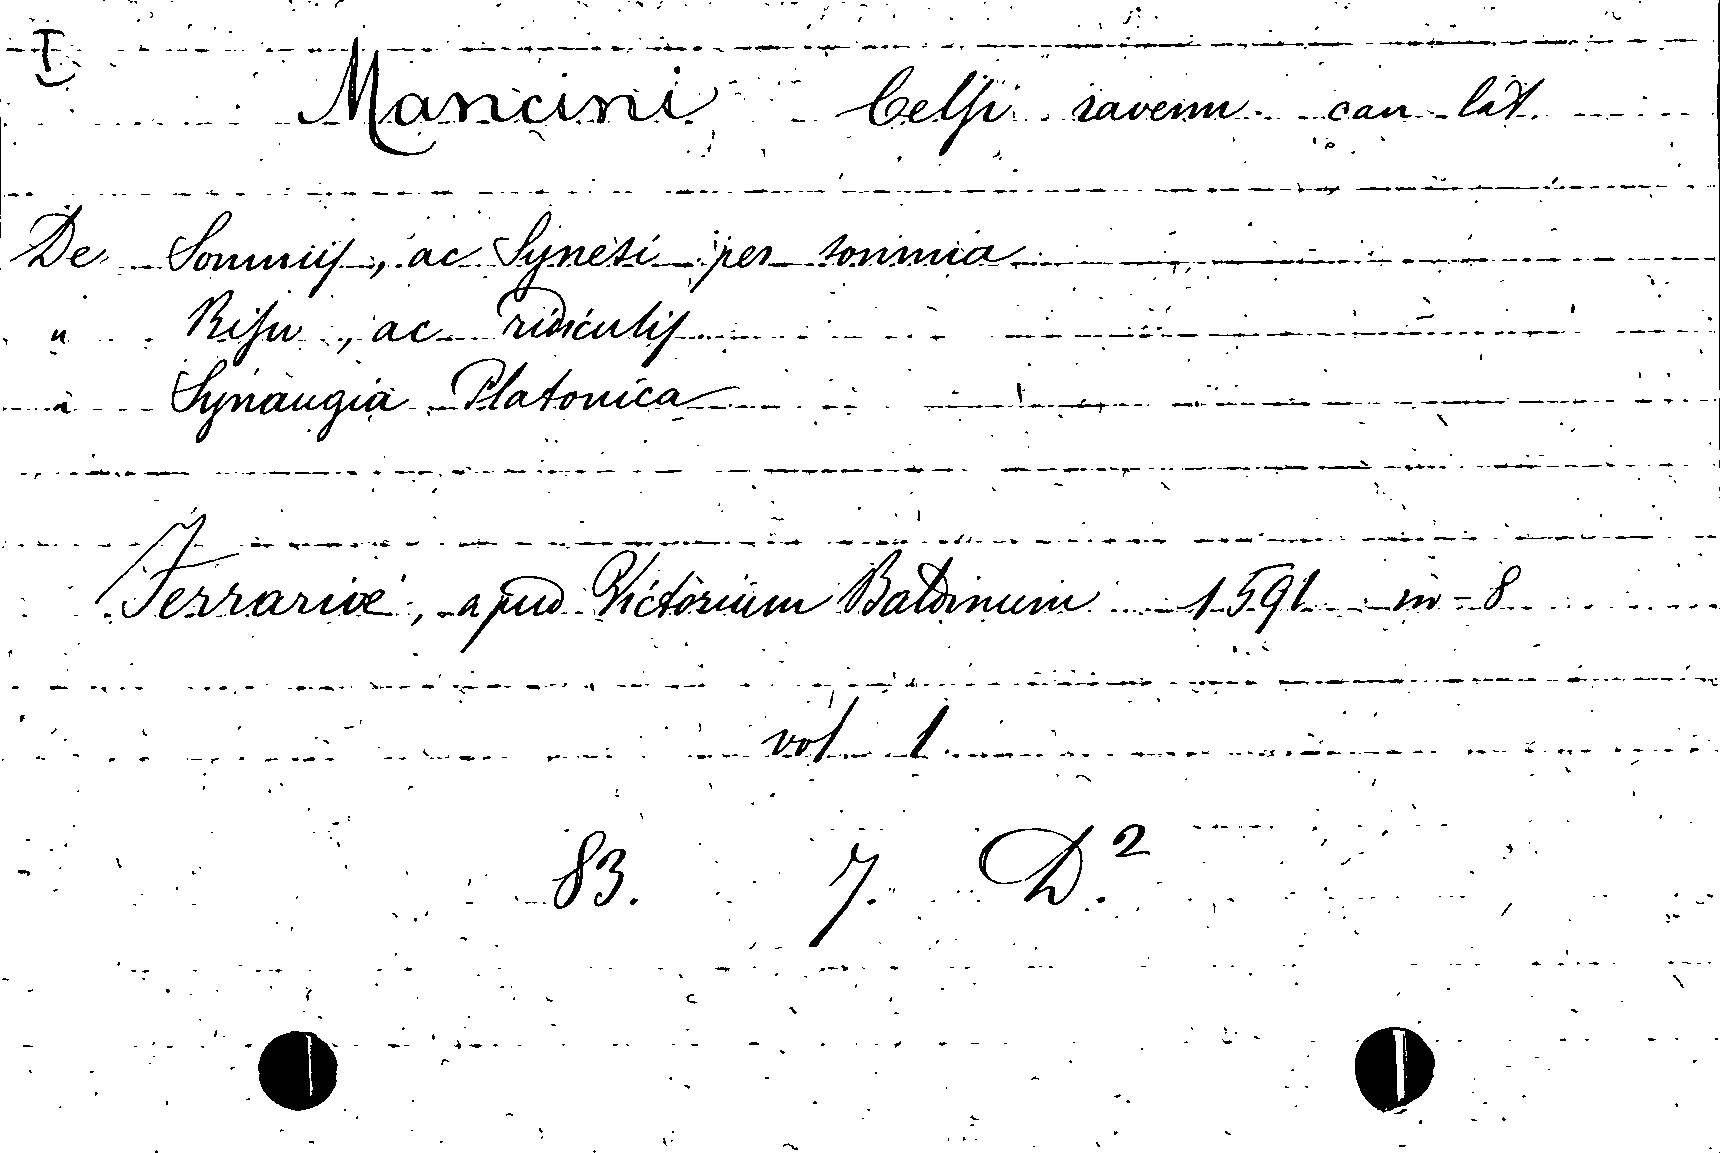 I
Mancini Celsi ravenn can lat
De Somniis, ac Synesi per somnia
" Risu, ac ridiculis
" Synaugia Platonica
Ferrariæ, apud Victorium Baldinum 1591 in-8
vol 1
83. 7. D.²